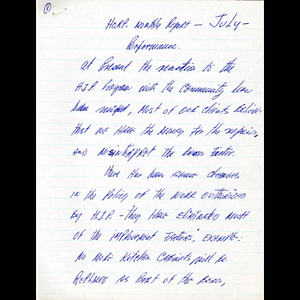 ①
HARP. Monthly Report — July —
Performance.
At Present the reaction to the
H.I.P. Program with the Community has
been mixed, Most of our clients believe
that we have the money for the repairs,
and misinterpret the loans factor.
There has been some changes
in the Policy of the work authorized
by H.I.P. - They have eliminated most
of the improvement factors, example:
No new Kitchen Cabinets will be
Replaced as Part of the loan,